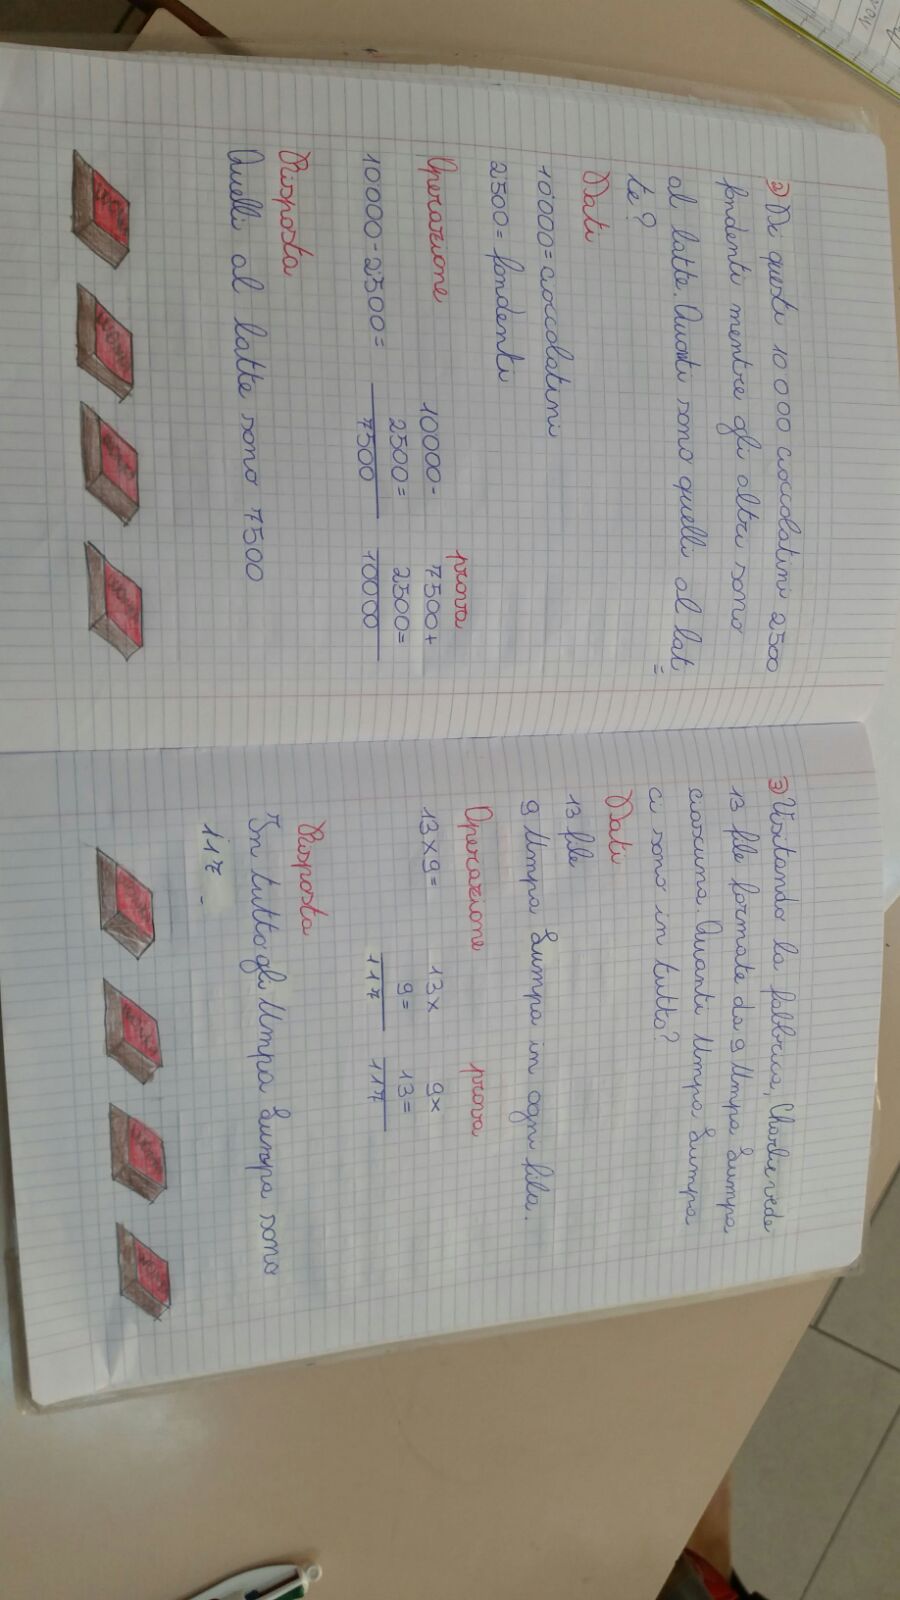 2) Di questi 10 000 cioccolatini 2500
fondenti mentre gli altri sono
al latte. Quanti sono quelli al lat
te?
Dati
10000 = cioccolatini
2500 = fondenti
Operazione
10000-2500=
10000-
2500=
7500
prova
7500+
2500=
10000
Risposta
Quelli al latte sono 7500
3) Visitando la fabbrica, Charlie vede
13 file formate da 9 Umpa Lumpa
ciascuna. Quanti Umpa Lumpa
ci sono in tutto?
Dati
13 file
9 Umpa Lumpa in ogni fila.
Operazione
13x9=
13x
9=
117
prova
9x
13=
117
Risposta
In tutto gli Umpa Lumpa sono
117.